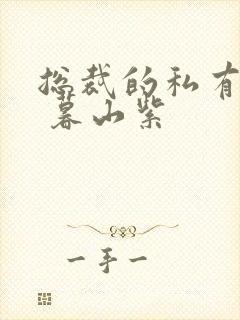 总裁的私有
暮山紫
一手一